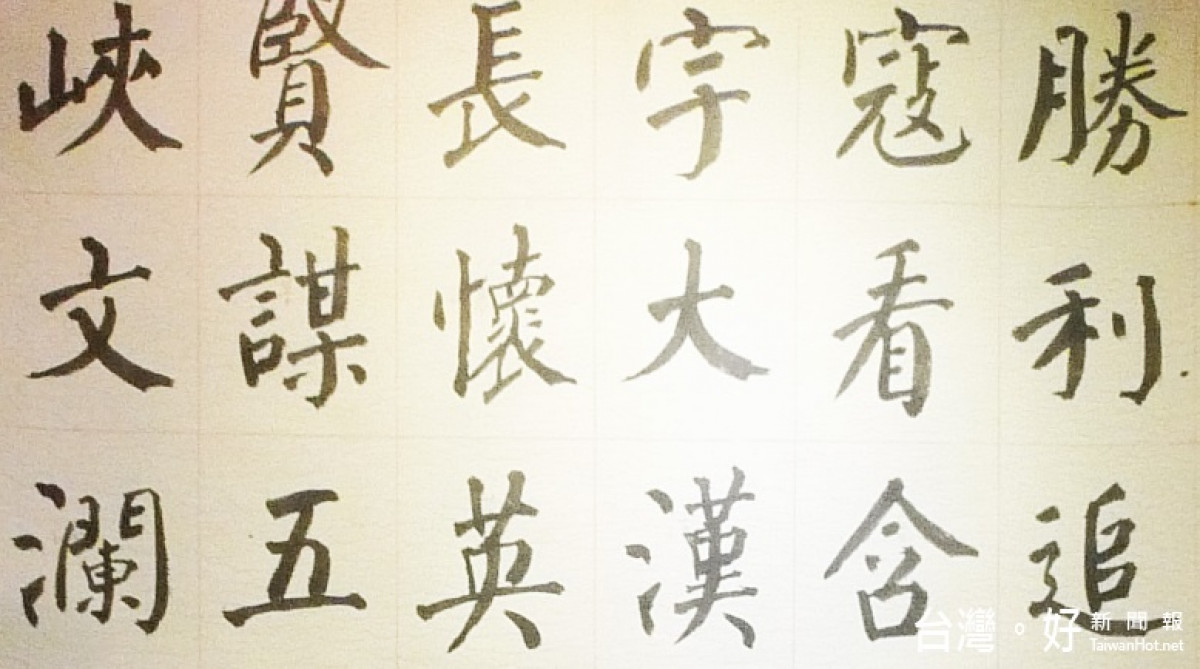 勝利追
寇看含
字大漢
長懷英
賢謀五
峽文瀾
台灣。好 新聞報
TaiwanHot.net